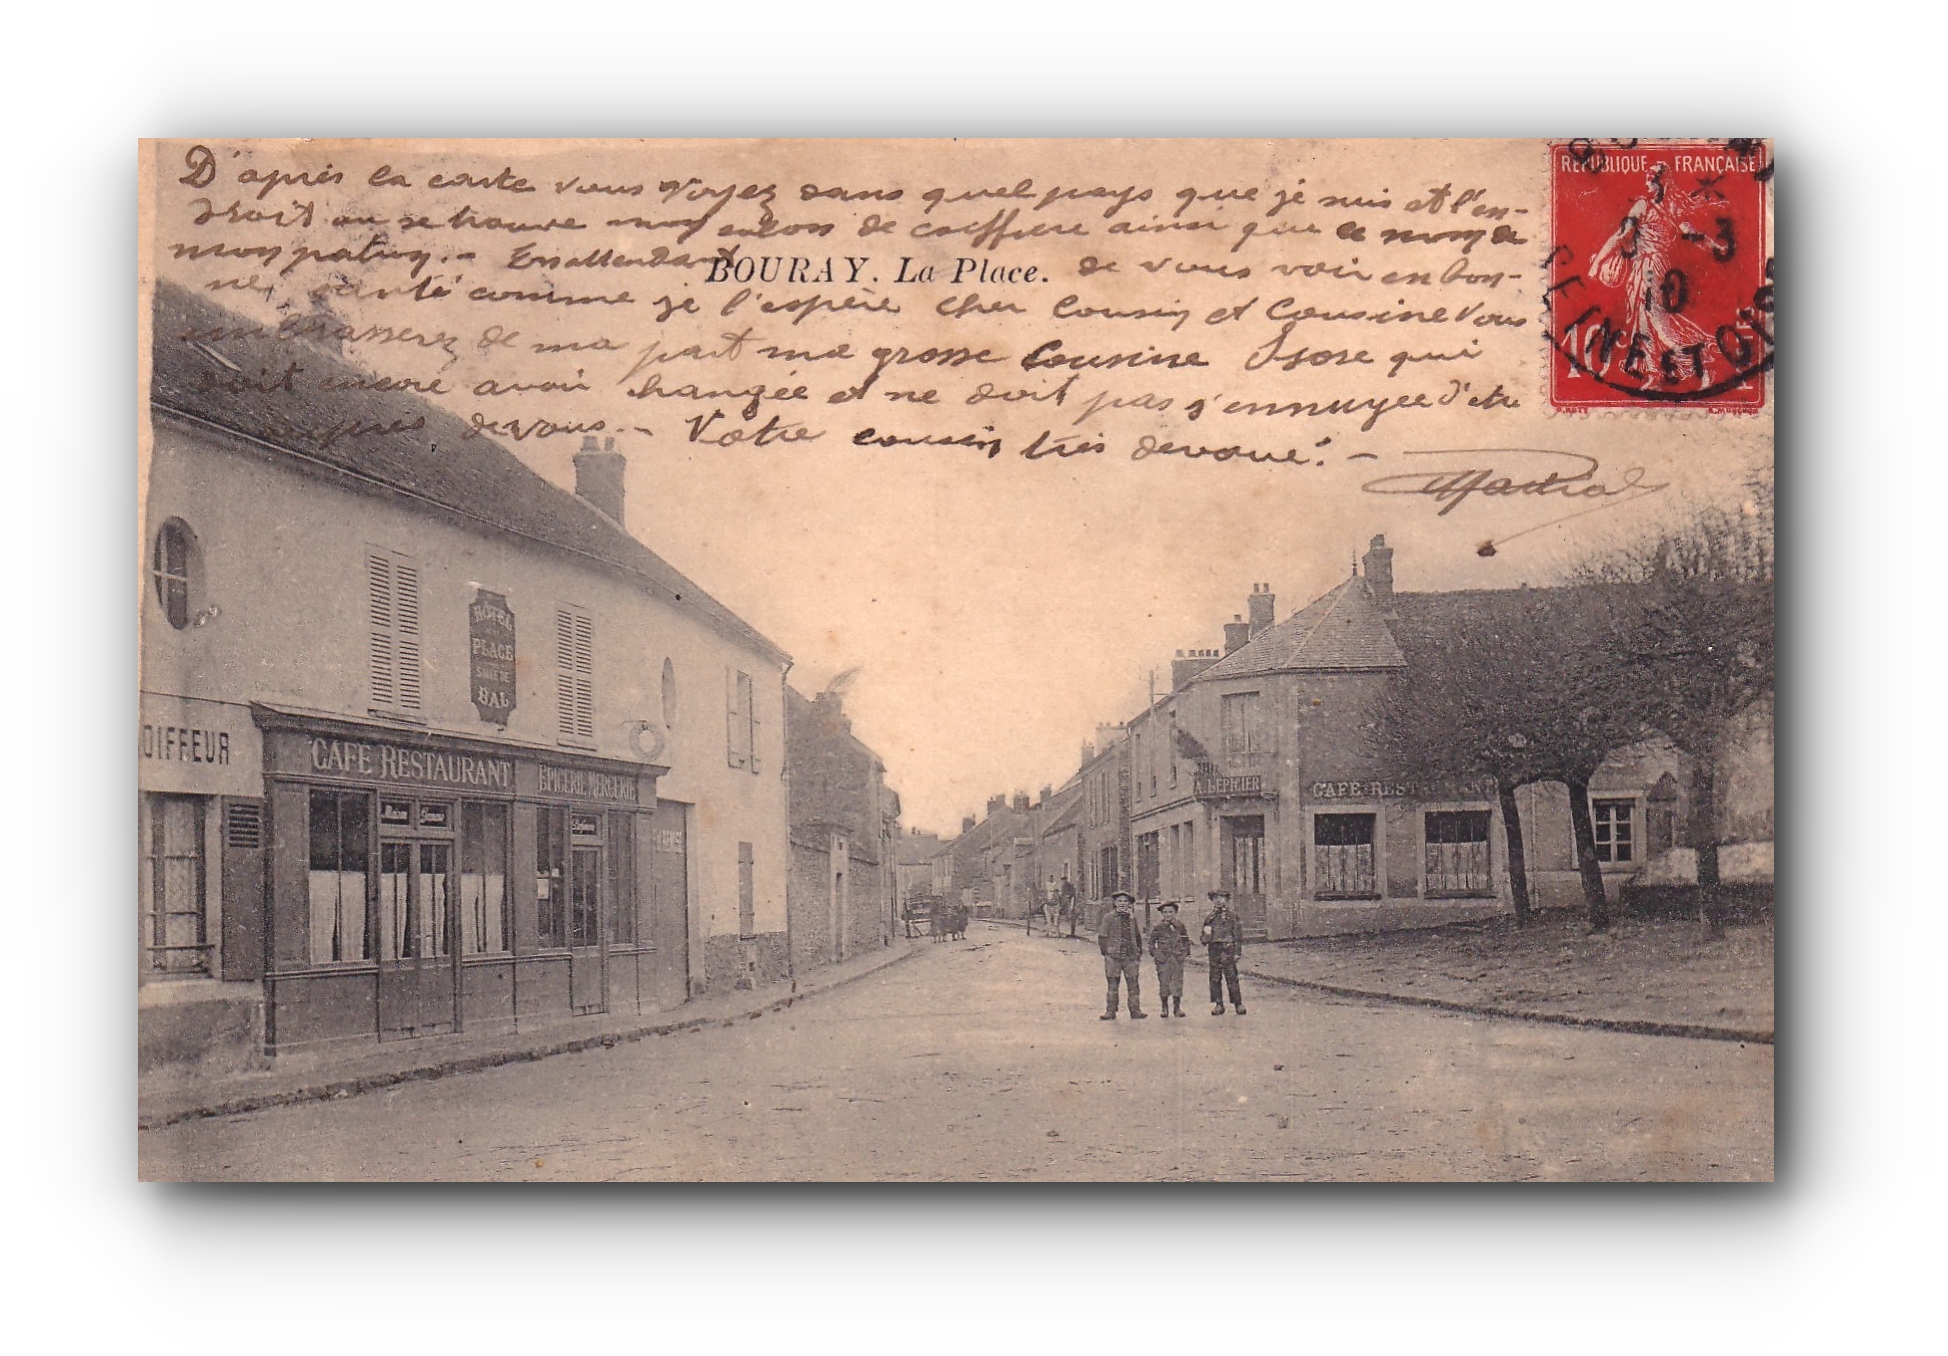 D'après la carte vous voyez dans quel pays que je suis et l'en-
droit ou se trouve mon salon de coiffure ainsi que ce nom de
mon patron. - En attendant de vous voir en bon-
BOURAY. La Place.
ne santé comme je l'espère cher Cousin et Cousine Vous
embrasserez de ma part ma grosse Cousine qui
doit encore avoir changée et ne doit pas s'ennuyee d'etre
auprès de vous. - Votre cousin très devoué. -
Martial
RÉPUBLIQUE FRANÇAISE
10 c
9 - 3
10
SEINE ET OISE
O. ROTY
HOTEL
PLACE
SALLE DE
BAL
OIFFEUR
CAFE RESTAURANT
EPICERIE MERCERIE
Maison
A. LEPICIER
CAFE RESTAURANT